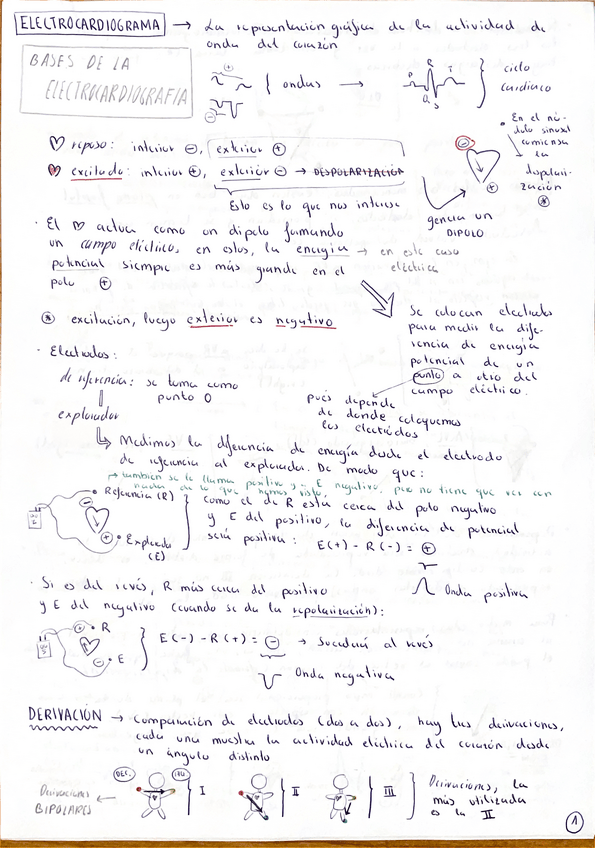 ELECTROCARDIOGRAMA → La representación gráfica de la actividad de
onda del corazón
BASES DE LA
ELECTROCARDIOGRAFIA
+
-
} ondas →
P R T
Q S
} ciclo
cardiaco
♡ reposo: interior ⊖, exterior ⊕
♥ excitado: interior ⊕, exterior ⊖ → DESPOLARIZACIÓN
Esto es lo que nos interesa
⊖
⊕
genera un
DIPOLO
• En el nó-
dulo sinusal
comienza
la
despolari-
zación
⊛
· El ♡ actúa como un dipolo formando
un campo eléctrico, en estos, la energía → en este caso
eléctrica
potencial siempre es más grande en el
polo ⊕
⊛ excitación, luego exterior es negativo
Se colocan electrodos
para medir la dife-
rencia de energía
potencial de un
punto a otro del
campo eléctrico.
pues depende
de donde coloquemos
los electrodos
· Electrodos:
de referencia: se toma como
punto 0
explorador
↳ Medimos la diferencia de energía desde el electrodo
de referencia al explorador. De modo que:
→ también se le llama positivo y - E negativo, pero no tiene que ver con
nada de lo que hemos visto
• Referencia (R)
⊖
⊕
• Explorador
(E)
como el de R está cerca del polo negativo
y E del positivo, la diferencia de potencial
será positiva: E(+) - R(-) = ⊕
Onda positiva
· Si es del revés, R más cerca del positivo
y E del negativo (cuando se da la repolarización):
⊕ • R
⊖ • E
E(-) - R(+) = ⊖ → Sucederá al revés
Onda negativa
DERIVACIÓN → Comparación de electrodos (dos a dos), hay tres derivaciones,
cada una muestra la actividad eléctrica del corazón desde
un ángulo distinto
Derivaciones
BIPOLARES
DEC.
IZQ
} I
} II
} III
Derivaciones, la
más utilizada
es la II
1